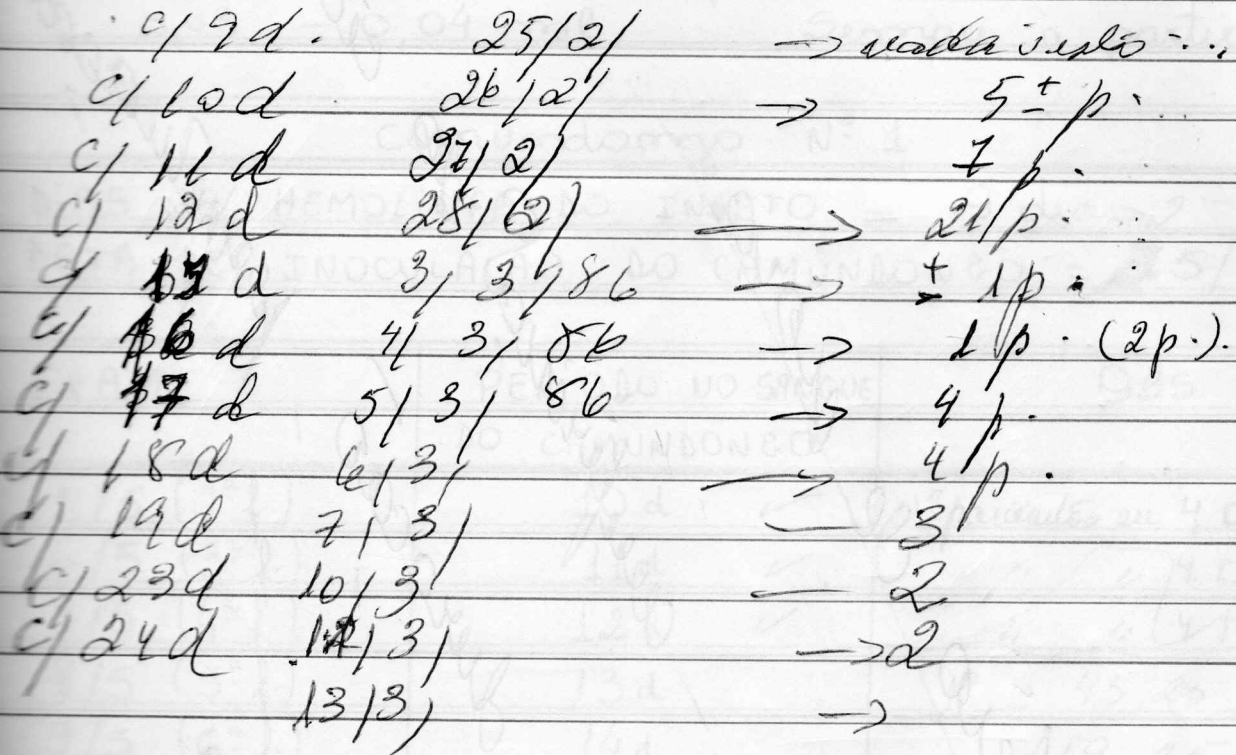 c/ 9 d. 25/2/ → nada visto...
c/ 10 d 26/2/ → 5 ± p.
c/ 11 d 27/2/ 7 p.
c/ 12 d 28/2/ → 21 p.
c/ d 3/3/86 → ± 1 p.
c/ 16 d 4/3/86 → 1 p. (2 p.).
c/ 17 d 5/3/86 → 4 p.
c/ 18 d 6/3/ → 4 p.
c/ 19 d 7/3/ — 3
c/ 23 d 10/3/ — 2
c/ 24 d /3/ → 2
13/3/ →